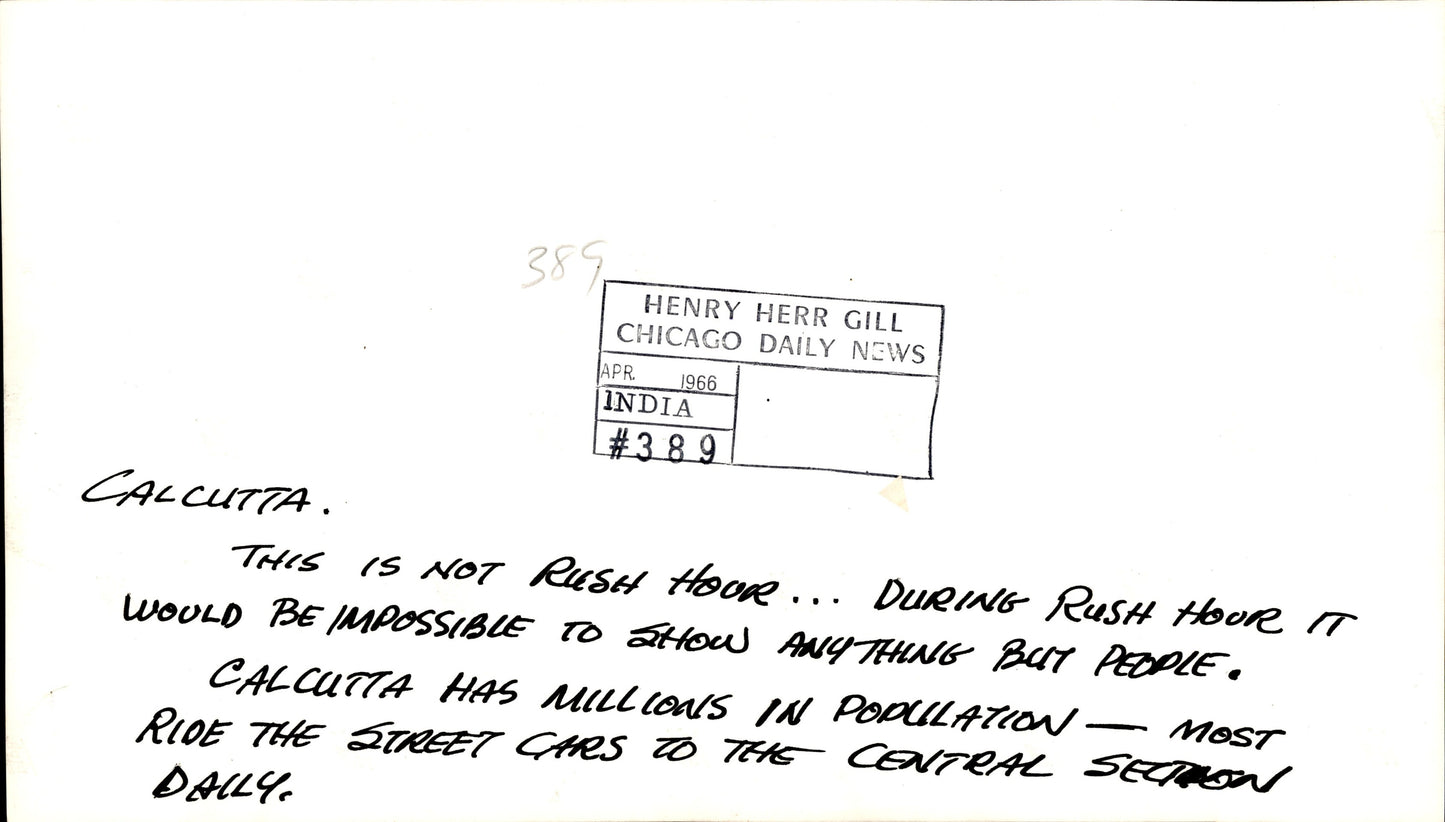 389
HENRY HERR GILL
CHICAGO DAILY NEWS
APR. 1966
INDIA
#389
CALCUTTA.
THIS IS NOT RUSH HOUR... DURING RUSH HOUR IT
WOULD BE IMPOSSIBLE TO SHOW ANYTHING BUT PEOPLE.
CALCUTTA HAS MILLIONS IN POPULATION — MOST
RIDE THE STREET CARS TO THE CENTRAL SECTION
DAILY.